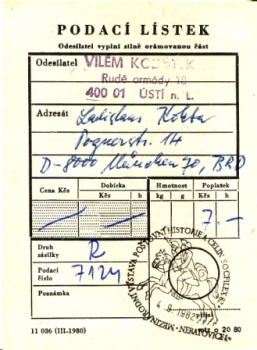 PODACÍ LÍSTEK
Odesílatel vyplní silně orámovanou část
Odesílatel VILÉM
Rudé armády 18
400 01 ÚSTÍ n. L.
Adresát Ladislaus
Pognerstr. 14
D-8000 München 70, BRD
Cena Kčs Dobírka Hmotnost Poplatek
Kčs h kg g Kčs h
7 -
Druh zásilky R
Podací číslo 7124
Poznámka
4. 9. 1982
NERATOVICE
11 036 (III-1980)
20 80